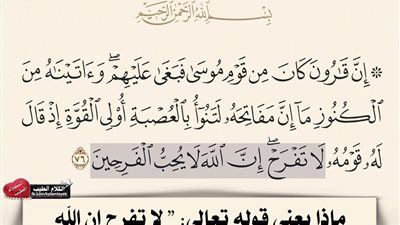 بِسْمِ اللَّهِ الرَّحْمَٰنِ الرَّحِيمِ
۞ إِنَّ قَٰرُونَ كَانَ مِن قَوْمِ مُوسَىٰ فَبَغَىٰ عَلَيْهِمْ ۖ وَءَاتَيْنَٰهُ مِنَ
ٱلْكُنُوزِ مَآ إِنَّ مَفَاتِحَهُۥ لَتَنُوٓأُ بِٱلْعُصْبَةِ أُو۟لِى ٱلْقُوَّةِ إِذْ قَالَ
لَهُۥ قَوْمُهُۥ لَا تَفْرَحْ ۖ إِنَّ ٱللَّهَ لَا يُحِبُّ ٱلْفَرِحِينَ ٧٦
الكلام الطيب
ماذا يعني قوله تعالى: ” لا تفرح إن الله